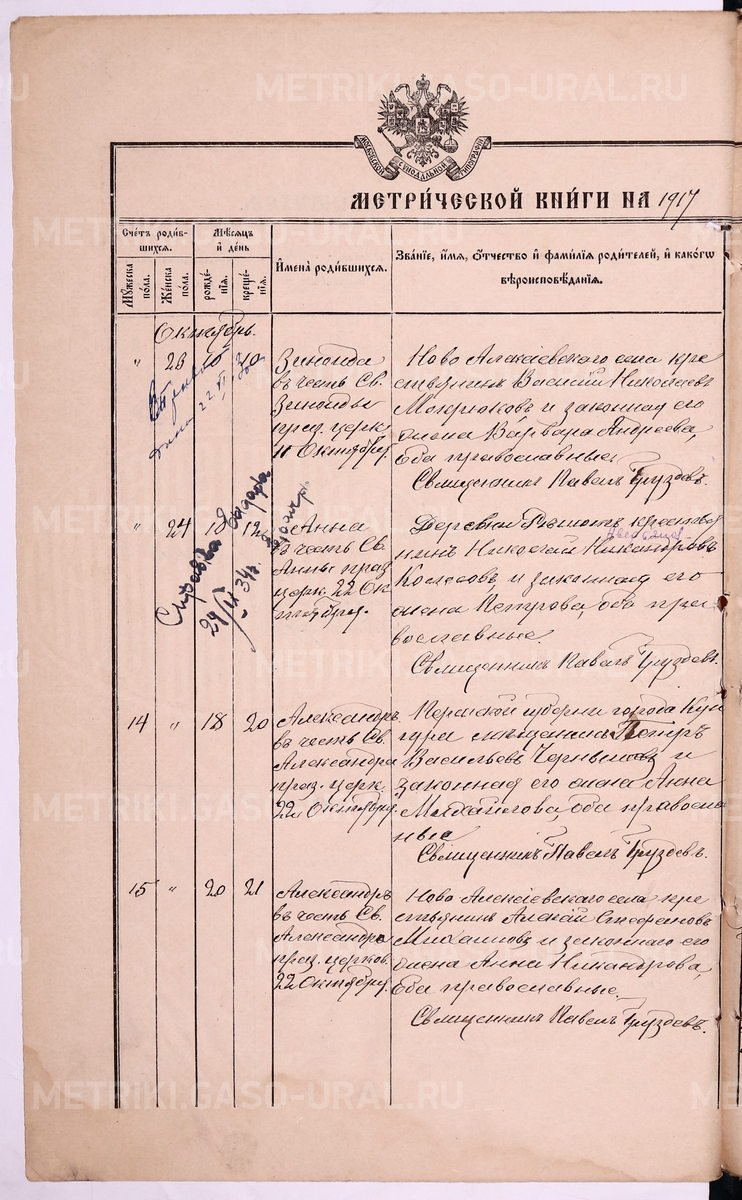 METRIKI.GASO-URAL.RU
МОСКОВСКОЙ СѴНОДАЛЬНОЙ ТИПОГРАФІИ
МЕТРИ́ЧЕСКОЙ КНИ́ГИ НА 1917
Сче́тъ роди́в-
шихся.
Му́жеска по́ла.
Же́нска по́ла.
Мѣ́сяцъ и҆ де́нь
рожде́-
нїя.
креще́-
нїя.
И҆мена̀ роди́вшихся.
Зва́нїе, и҆́мя, ѻ҆́тчество и҆ фами́лїя роди́телей, и҆ како́гѡ
вѣроисповѣ́данїя.
Октябрь.
" 23 10
Зинаида
въ честь Св.
Зинаиды
праз. церк.
11 Октября.
Ново Алексіевскаго села кре
стьянинъ Василій Николаевъ
Мокрюковъ и законная его
жена Варвара Андреева,
оба православные.
Священникъ Павелъ Груздевъ.
" 24 18
Анна
въ честь Св.
Анны праз
церк. 22 Ок
тября.
Справка
29/IX 34г.
Деревни крестья
нинъ Николай Никандровъ
Колесовъ и законная его
жена Петрова, оба пра
вославные.
Священникъ Павелъ Груздевъ.
14 " 18 20
Александръ
въ честь Св.
Александра
праз. церк.
22 Октября.
Пермской губерніи города Кун
гура мещанинъ Петръ
Васильевъ Чернышевъ и
законная его жена Анна
Михайлова, оба правосла
вные
Священникъ Павелъ Груздевъ.
15 " 20 21
Александръ
въ честь Св.
Александра
праз. церков.
22 Октября.
Ново Алексіевскаго села кре
стьянинъ Алексій Стефановъ
и законная его
жена Анна Никандрова,
оба православные.
Священникъ Павелъ Груздевъ.